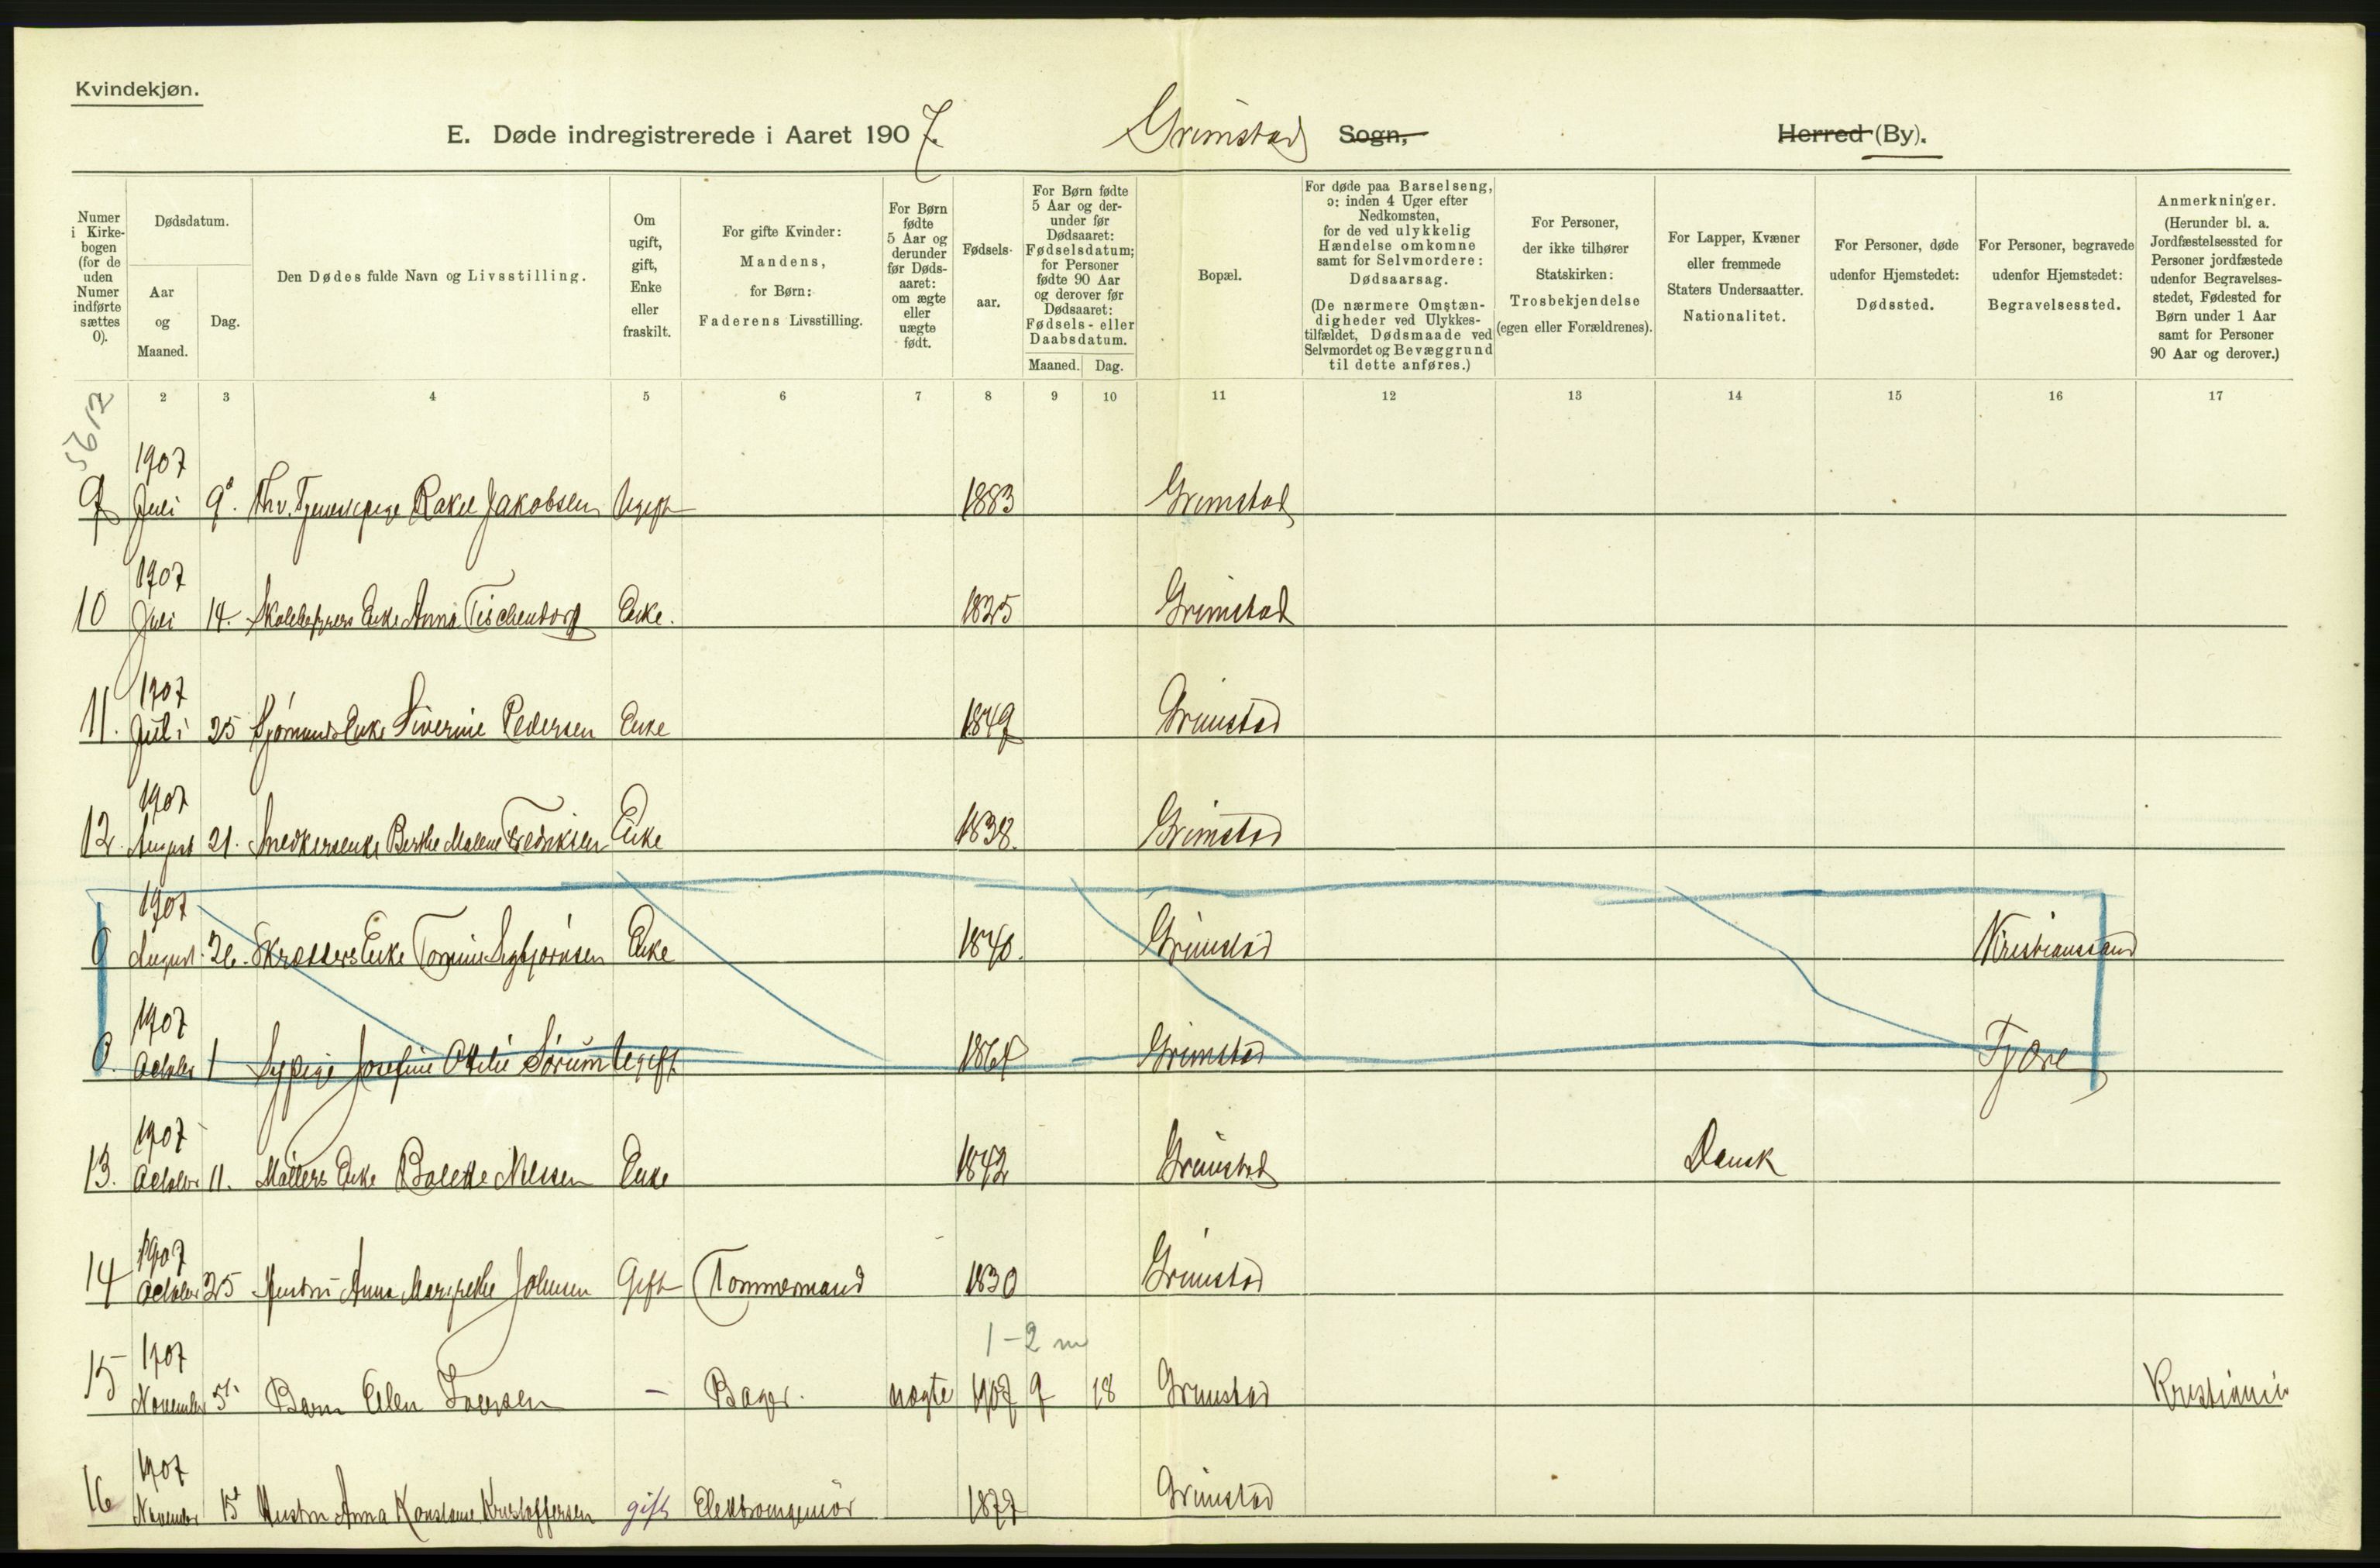 Kvindekjøn.
E. Døde indregistrerede i Aaret 1907. Grimstad Sogn, Herred (By).
Numer i Kirkebogen (for de uden Numer indførte sættes 0).
Dødsdatum.
Aar og Maaned.
Dag.
Den Dødes fulde Navn og Livsstilling.
Om ugift, gift, Enke eller fraskilt.
For gifte Kvinder: Mandens, for Børn: Faderens Livsstilling.
For Børn fødte 5 Aar og derunder før Dødsaaret: om ægte eller uægte født.
Fødselsaar.
For Børn fødte 5 Aar og derunder før Dødsaaret: Fødselsdatum; for Personer fødte 90 Aar og derover før Dødsaaret: Fødsels- eller Daabsdatum.
Maaned. Dag.
Bopæl.
For døde paa Barselseng, ɔ: inden 4 Uger efter Nedkomsten, for de ved ulykkelig Hændelse omkomne samt for Selvmordere: Dødsaarsag.
(De nærmere Omstændigheder ved Ulykkestilfældet, Dødsmaade ved Selvmordet og Bevæggrund til dette anføres.)
For Personer, der ikke tilhører Statskirken: Trosbekjendelse (egen eller Forældrenes).
For Lapper, Kvæner eller fremmede Staters Undersaatter. Nationalitet.
For Personer, døde udenfor Hjemstedet: Dødssted.
For Personer, begravede udenfor Hjemstedet: Begravelsessted.
Anmerkninger.
(Herunder bl. a. Jordfæstelsessted for Personer jordfæstede udenfor Begravelsesstedet, Fødested for Børn under 1 Aar samt for Personer 90 Aar og derover.)
2 3 4 5 6 7 8 9 10 11 12 13 14 15 16 17
5612
1907
9 Juli 9d. Fhv. Tjenestepige Rakel Jakobsen Ugift 1883 Grimstad
1907
10 Juli 14. Enke Anna Tischendorf Enke. 1825 Grimstad
1907
11. Juli 25 Sjømands Enke Siverine Pedersen Enke 1849 Grimstad
1907
12. August 21. Snedkerenke Berthe Malene Fredriksen Enke 1838. Grimstad
1907
0 August. 26. Skrædders Enke Enke 1840. Grimstad Kristianssand
1907
0. October 1 Sypige Josefine Otilie Sørum Ugift 1864 Grimstad Fjære
1907
13. October 11. Møllers Enke Bolette Nilssen Enke 1842 Grimstad Dansk
1907
14 October 25 Hustru Anna Margrethe Johnsen Gift Tømmermand 1830 Grimstad
1-2 m
1907
15 November 5t. Barn Ellen - Bager. uægte 1907 9 18 Grimstad Kristiania
1907
16 November 15d Hustru Anna Konstance Kristoffersen gift 1877 Grimstad